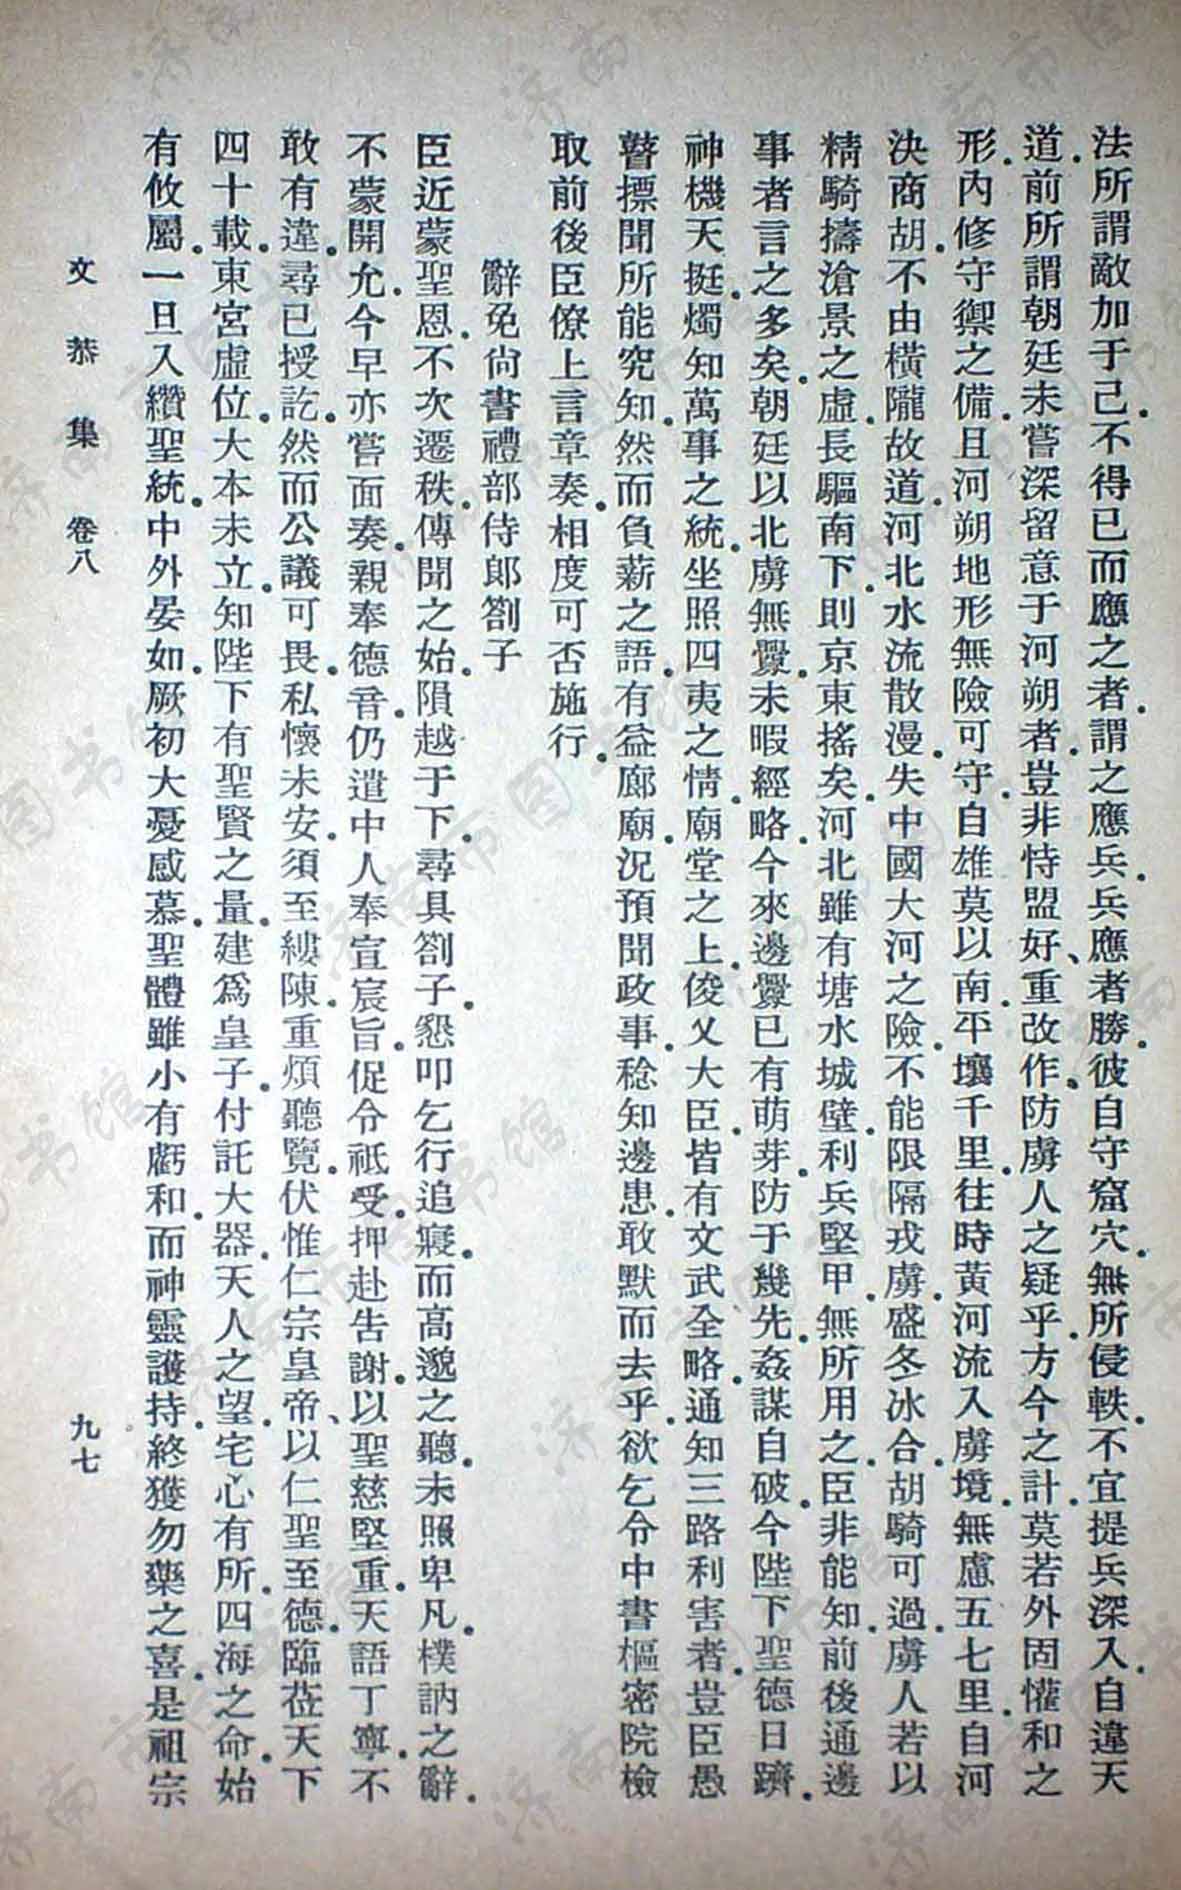 法所謂敵加于己。不得已而應之者。謂之應兵。兵應者勝。彼自守窟穴。無所侵軼。不宜提兵深入。自違天
道。前所謂朝廷未嘗深留意于河朔者。豈非恃盟好、重改作。防虜人之疑乎。方今之計。莫若外固懽和之
形。內修守禦之備。且河朔地形無險可守。自雄莫以南。平壤千里。往時黃河流入虜境。無慮五七里。自河
決商胡。不由橫隴故道。河北水流散漫。失中國大河之險。不能限隔戎虜。盛冬冰合。胡騎可過。虜人若以
精騎擣滄景之虛。長驅南下。則京東搖矣。河北雖有塘水城壁。利兵堅甲。無所用之。臣非能知。前後通邊
事者言之多矣。朝廷以北虜無釁。未暇經略。今來邊釁已有萌芽。防于幾先。姦謀自破。今陛下聖德日躋。
神機天挺。燭知萬事之統。坐照四夷之情。廟堂之上。俊乂大臣。皆有文武全略。通知三路利害者。豈臣愚
瞽摽聞所能究知。然而負薪之語。有益廊廟。況預聞政事。稔知邊患。敢默而去乎。欲乞令中書樞密院檢
取前後臣僚上言章奏。相度可否施行。
辭免尚書禮部侍郎劄子
臣近蒙聖恩。不次遷秩。傳聞之始。隕越于下。尋具劄子。懇叩乞行追寢。而高邈之聽。未照卑凡。樸訥之辭。
不蒙開允。今早亦嘗面奏。親奉德音。仍遣中人奉宣宸旨。促令祗受。押赴告謝。以聖慈堅重。天語丁寧。不
敢有違。尋已授訖。然而公議可畏。私懷未安。須至縷陳。重煩聽覽。伏惟仁宗皇帝、以仁聖至德。臨莅天下
四十載。東宮虛位。大本未立。知陛下有聖賢之量。建為皇子。付託大器。天人之望。宅心有所。四海之命。始
有攸屬。一旦入纘聖統。中外晏如。厥初大憂感慕。聖體雖小有虧和。而神靈護持。終獲勿藥之喜。是祖宗
文恭集 卷八
九七
济南市图书馆